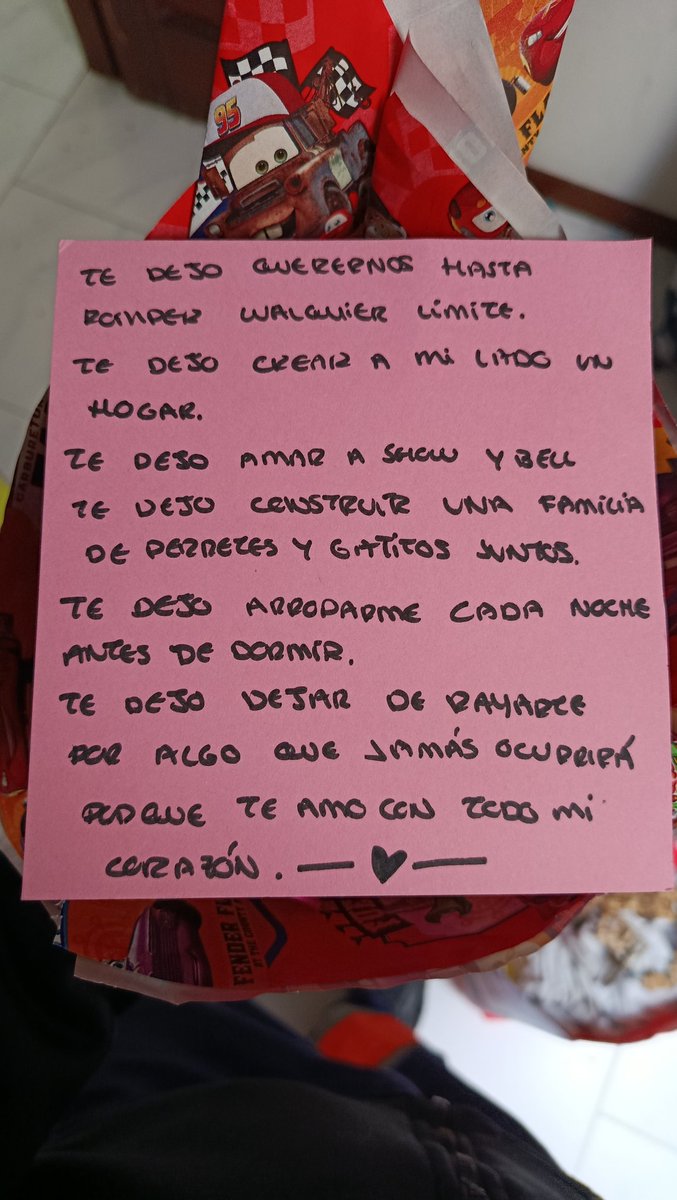 95
TE DEJO QUERERNOS HASTA
ROMPER CUALQUIER LÍMITE.
TE DEJO CREAR A MI LADO UN
HOGAR.
TE DEJO AMAR A SHOW Y BELL
TE DEJO CONSTRUIR UNA FAMILIA
DE PERRETES Y GATITOS JUNTOS.
TE DEJO ARROPARME CADA NOCHE
ANTES DE DORMIR.
TE DEJO DEJAR DE RAYARTE
POR ALGO QUE JAMÁS OCURRIRÁ
PORQUE TE AMO CON TODO MI
CORAZÓN.
FENDER